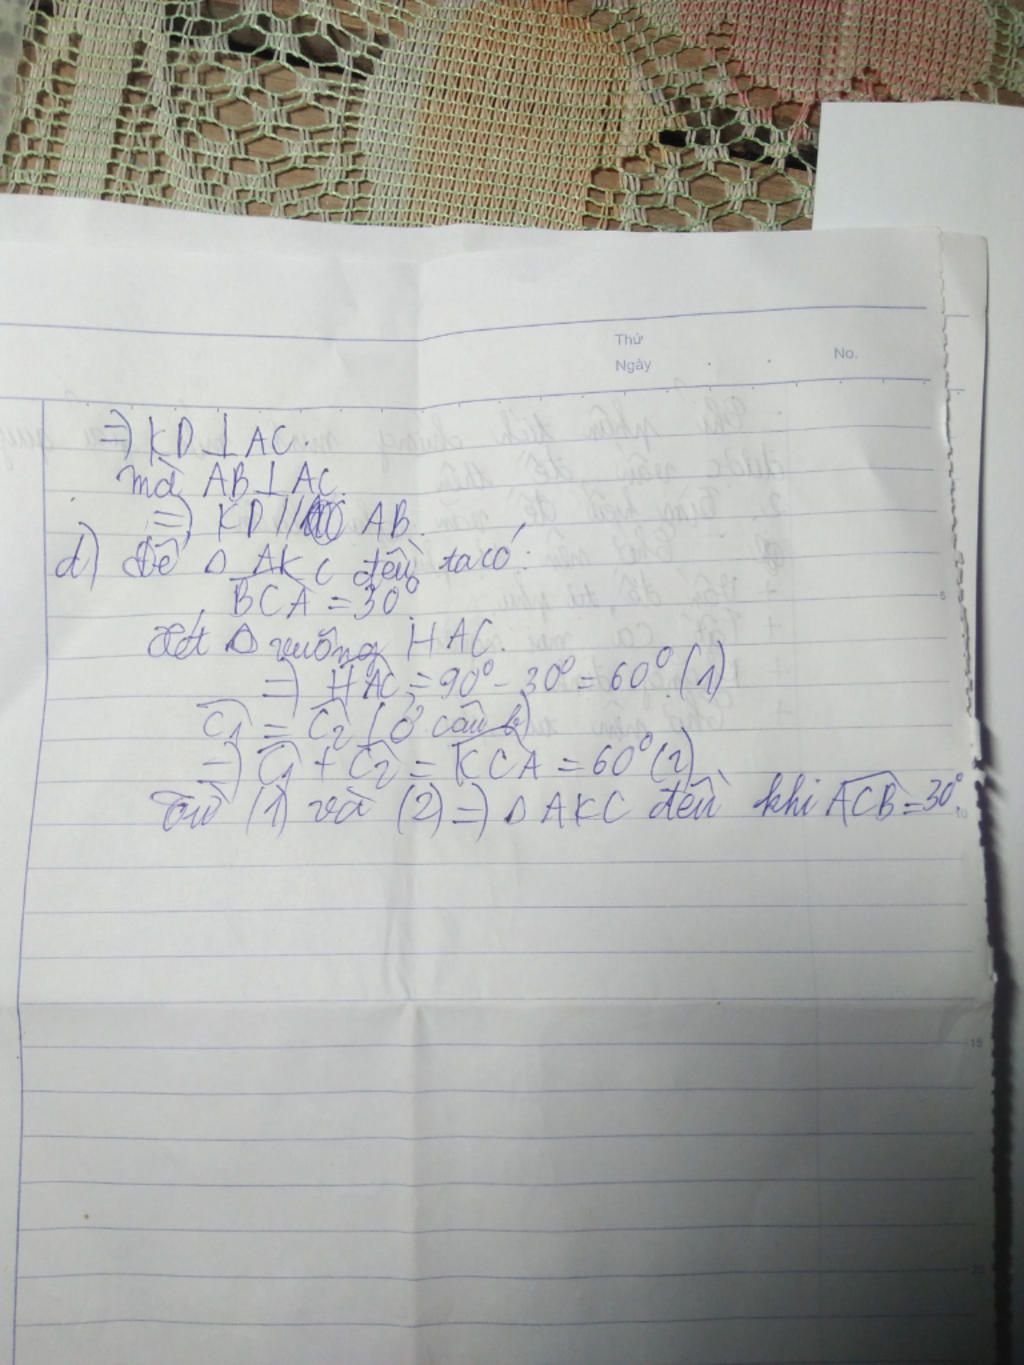 Thứ
Ngày . . No.
=> KD ⊥ AC.
mà AB ⊥ AC.
=> KD // AB.
d) Để Δ AKC đều, ta có:
BCA = 30°
Xét Δ vuông HAC.
=> HAC = 90° - 30° = 60° (1)
C1 = C2 (ở câu b)
=> C1 + C2 = KCA = 60° (2)
Từ (1) và (2) => Δ AKC đều khi ACB = 30°.
5
10
15
20